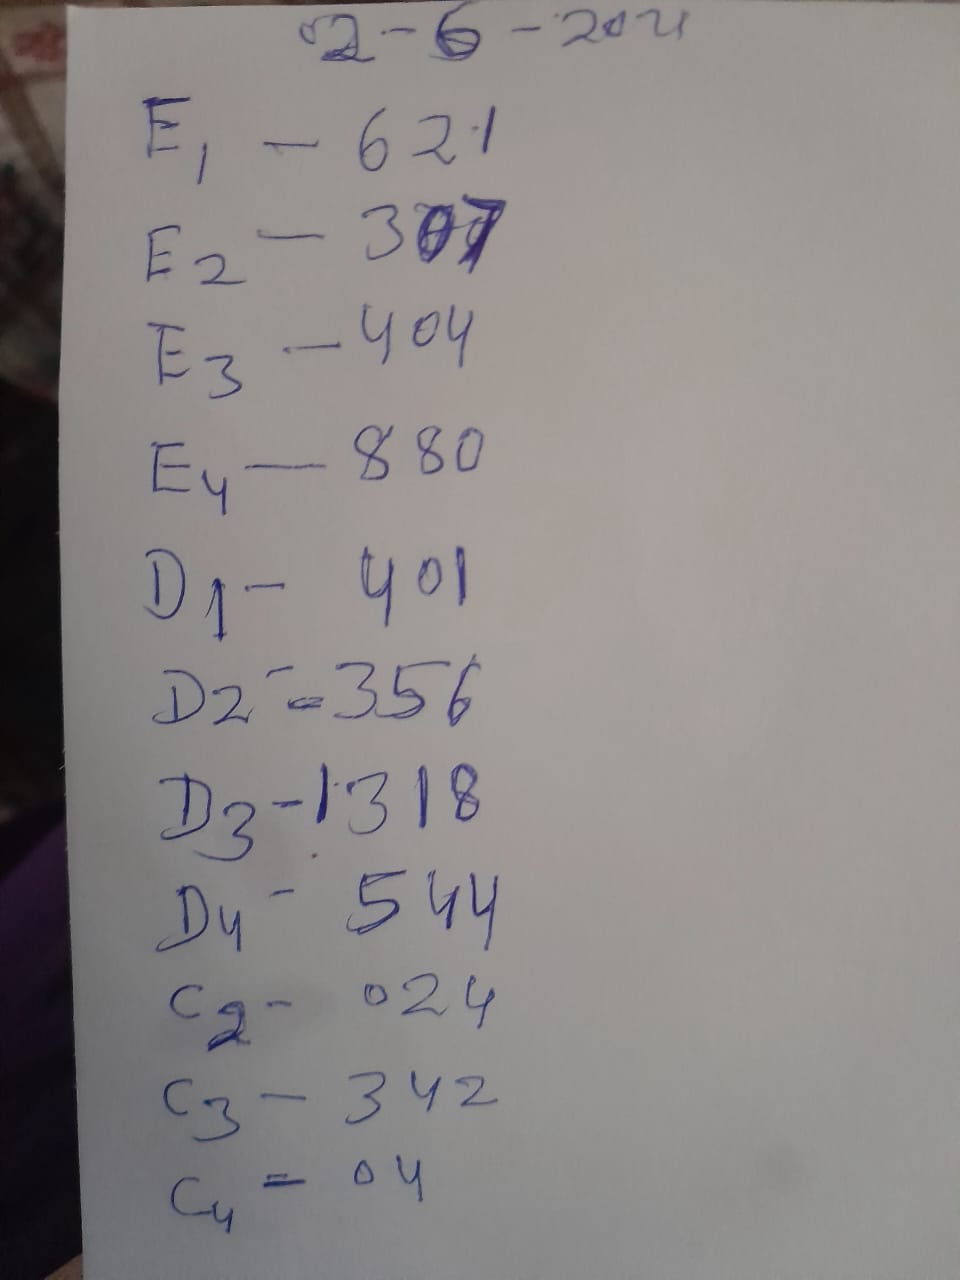 02-6-2021
E1 - 621
E2 - 307
E3 - 404
E4 - 880
D1 - 401
D2 - = 356
D3 - 1318
D4 - 544
C2 - 024
C3 - 342
C4 = 04